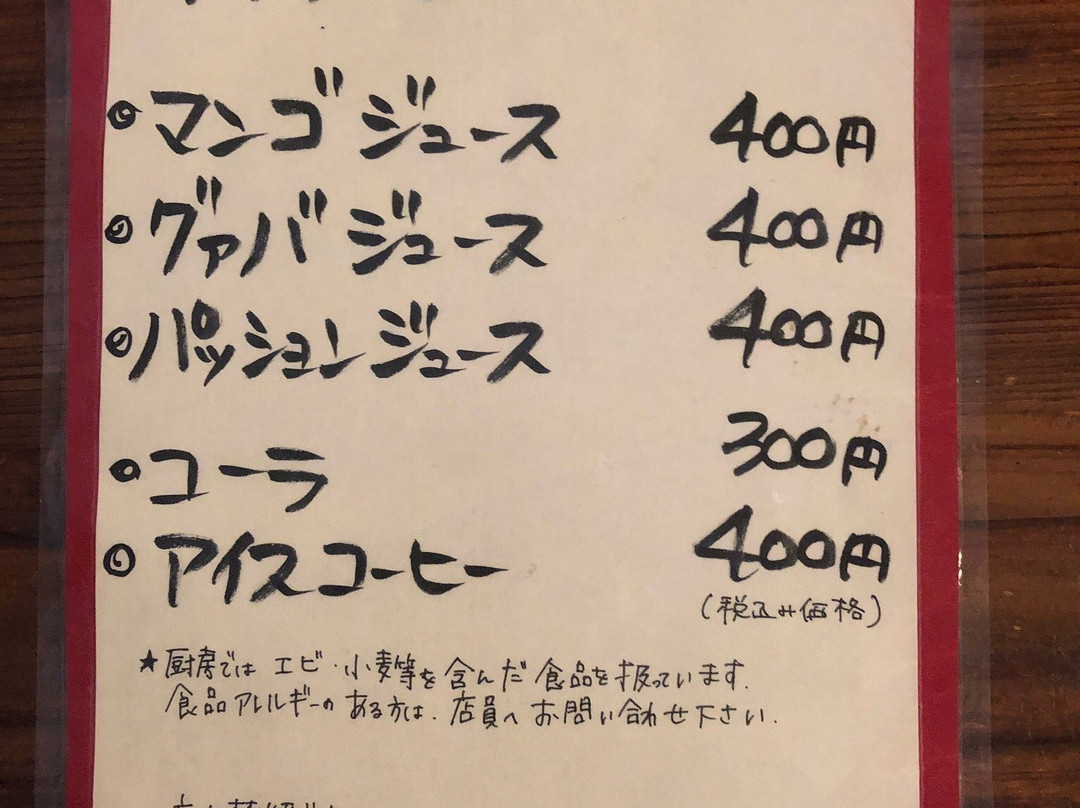 ◎マンゴジュース 400円
◎グァバジュース 400円
◎パッションジュース 400円
◎コーラ 300円
◎アイスコーヒー 400円
(税込み価格)
★厨房では エビ・小麦等を含んだ食品を扱っています.
食品アレルギーのある方は.店員へお問い合わせ下さい.